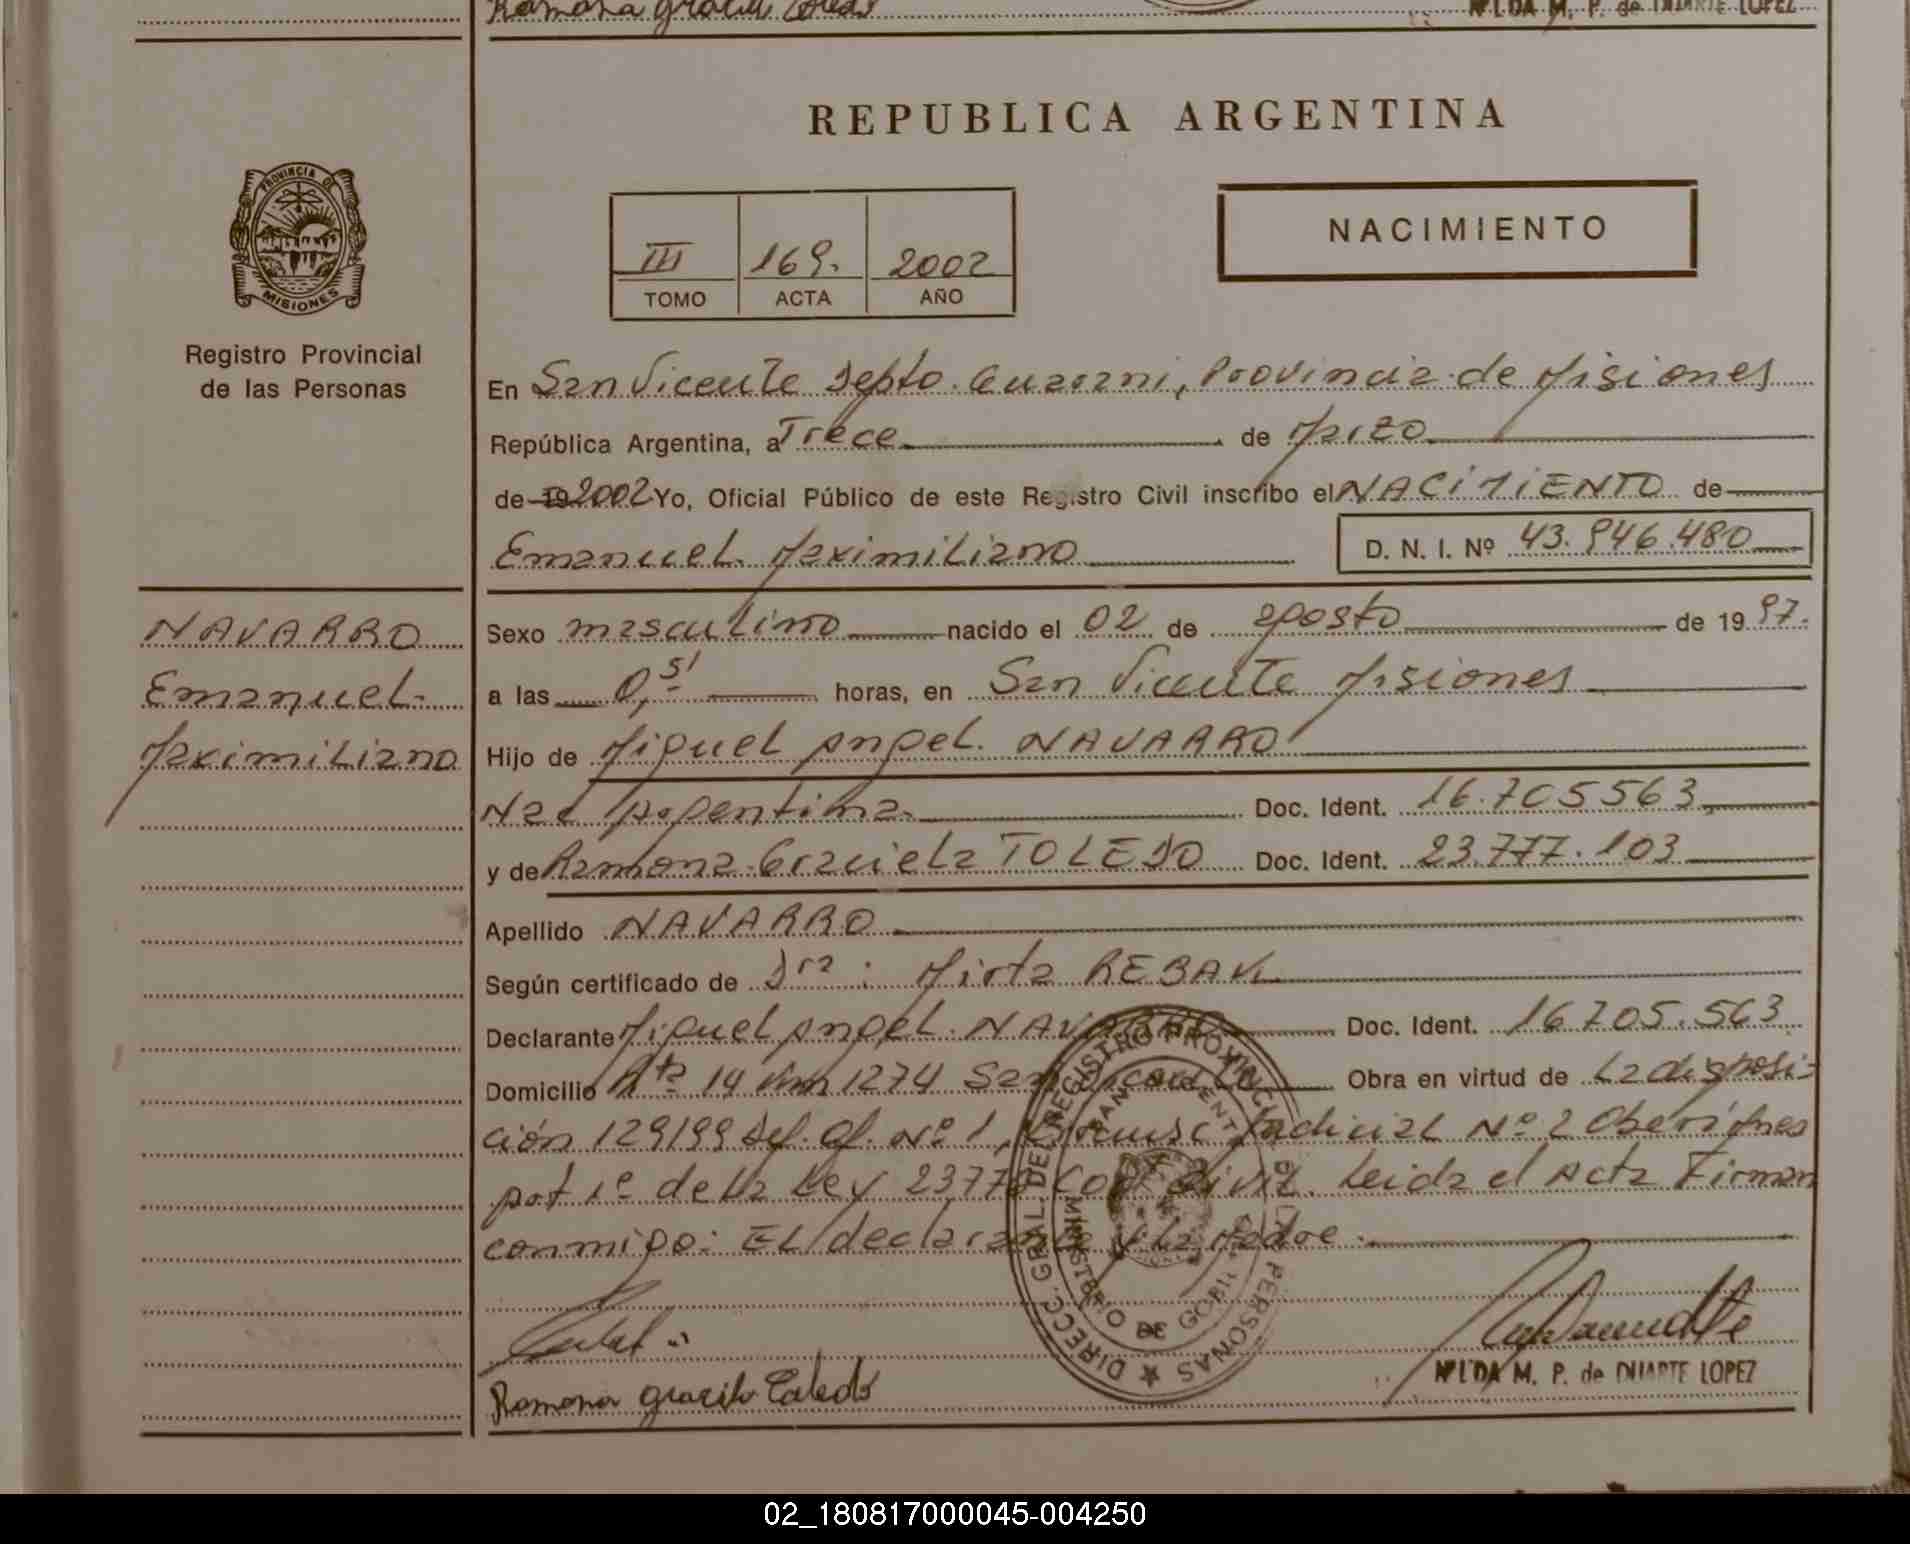 Ramona graciela Toledo
Nº LDA M. P. de DUARTE LOPEZ
REPUBLICA ARGENTINA
PROVINCIA DE
MISIONES
Registro Provincial
de las Personas
III 169. 2002
TOMO ACTA AÑO
NACIMIENTO
En San Vicente Depto. Guarani, Provincia de Misiones
República Argentina, a Trece de Marzo
de 19 2002 Yo, Oficial Público de este Registro Civil inscribo el NACIMIENTO de
Emanuel Maximiliano D. N. I. Nº 43.946.480
NAVARRO
Emanuel
Maximiliano
Sexo masculino nacido el 02 de agosto de 19 97.
a las 0,5' horas, en San Vicente Misiones
Hijo de Miguel Angel NAVARRO
Nac Argentina Doc. Ident. 16.705563
y de Ramona Graciela TOLEDO Doc. Ident. 23.777.103
Apellido NAVARRO
Según certificado de Dra: Mirta
Declarante Miguel Angel NAVARRO Doc. Ident. 16.705.563
Domicilio Rta 14 km 1274 San Vicente Obra en virtud de La disposi-
ción 129199 Def. Of. Nº 1, Circunsc Judicial Nº 2 Obera
Art 1º de La Ley 2377 Civil. Leida el Acta Firman
conmigo: EL declarante y La Madre.
DIRECC. GRAL. DEL REGISTRO PROVINCIAL DE PERSONAS
SAN VICENTE
MINISTERIO DE GOB
Ramona graciela Toledo
Nº LDA M. P. de DUARTE LOPEZ
02_180817000045-004250